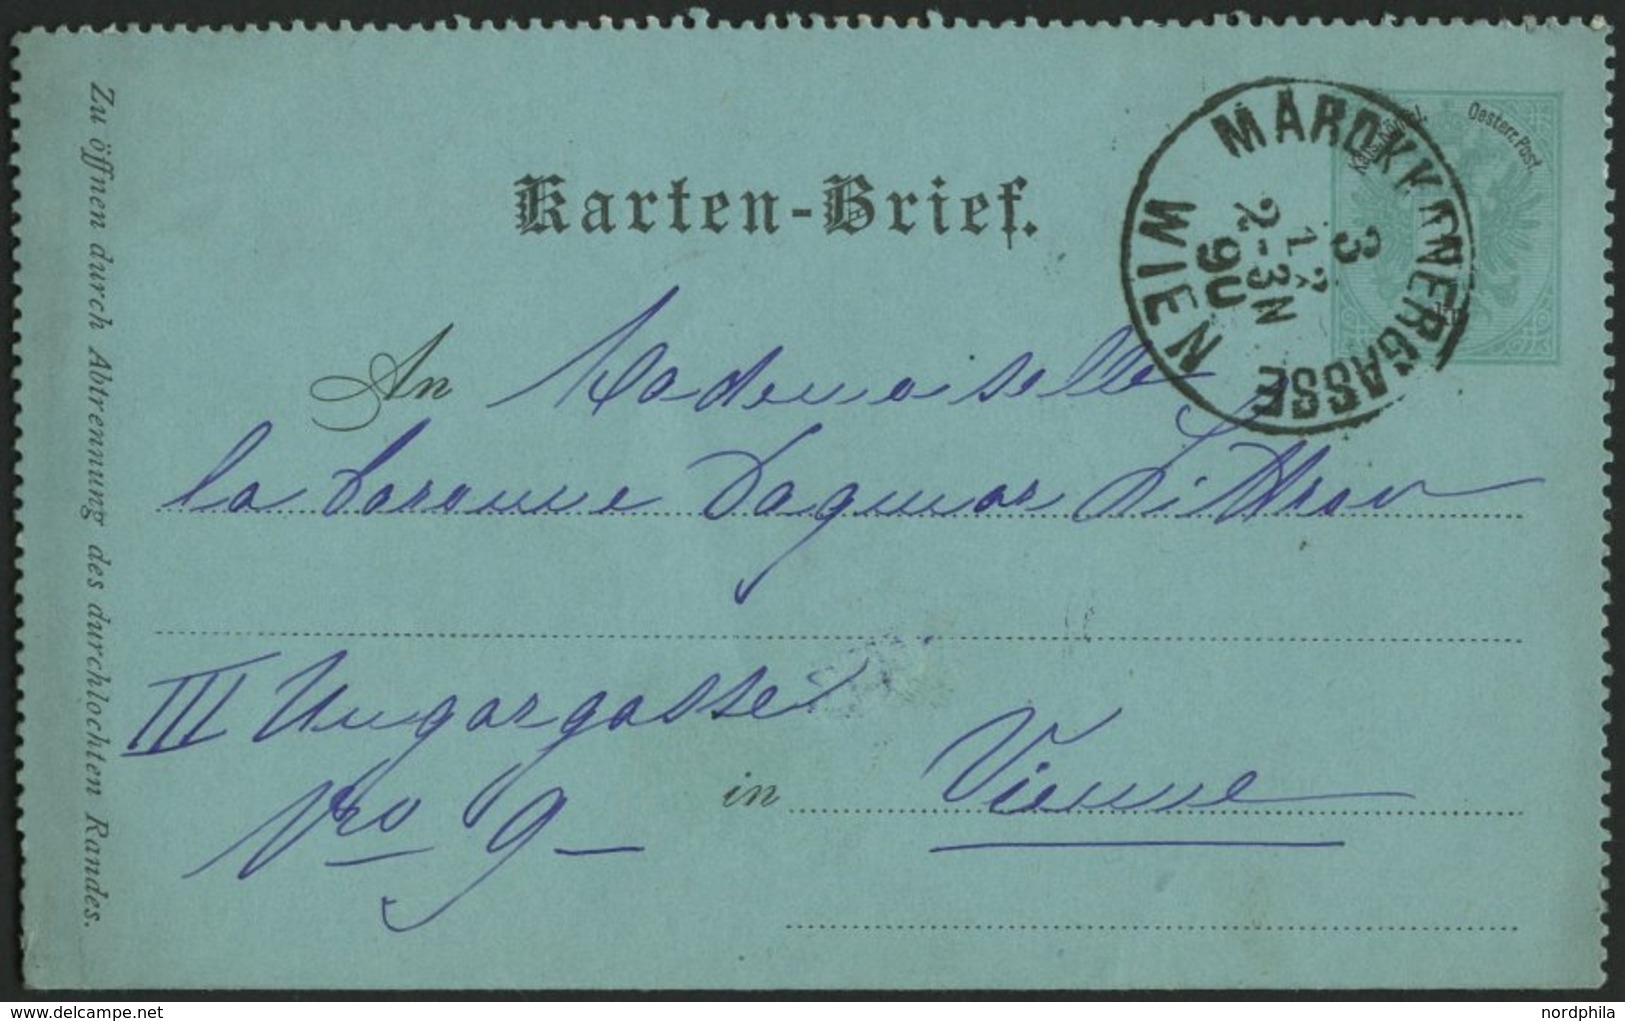 Karten-Brief.
Kais. Königl. Oesterr. Post.
MAROKKANERGASSE
WIEN
3
12
2-3N
90
An Mademoiselle
la Baronne Dagmar Littrow
III Ungargasse
Nro 9
in Vienne
Zu öffnen durch Abtrennung des durchlochten Randes.
nordphila